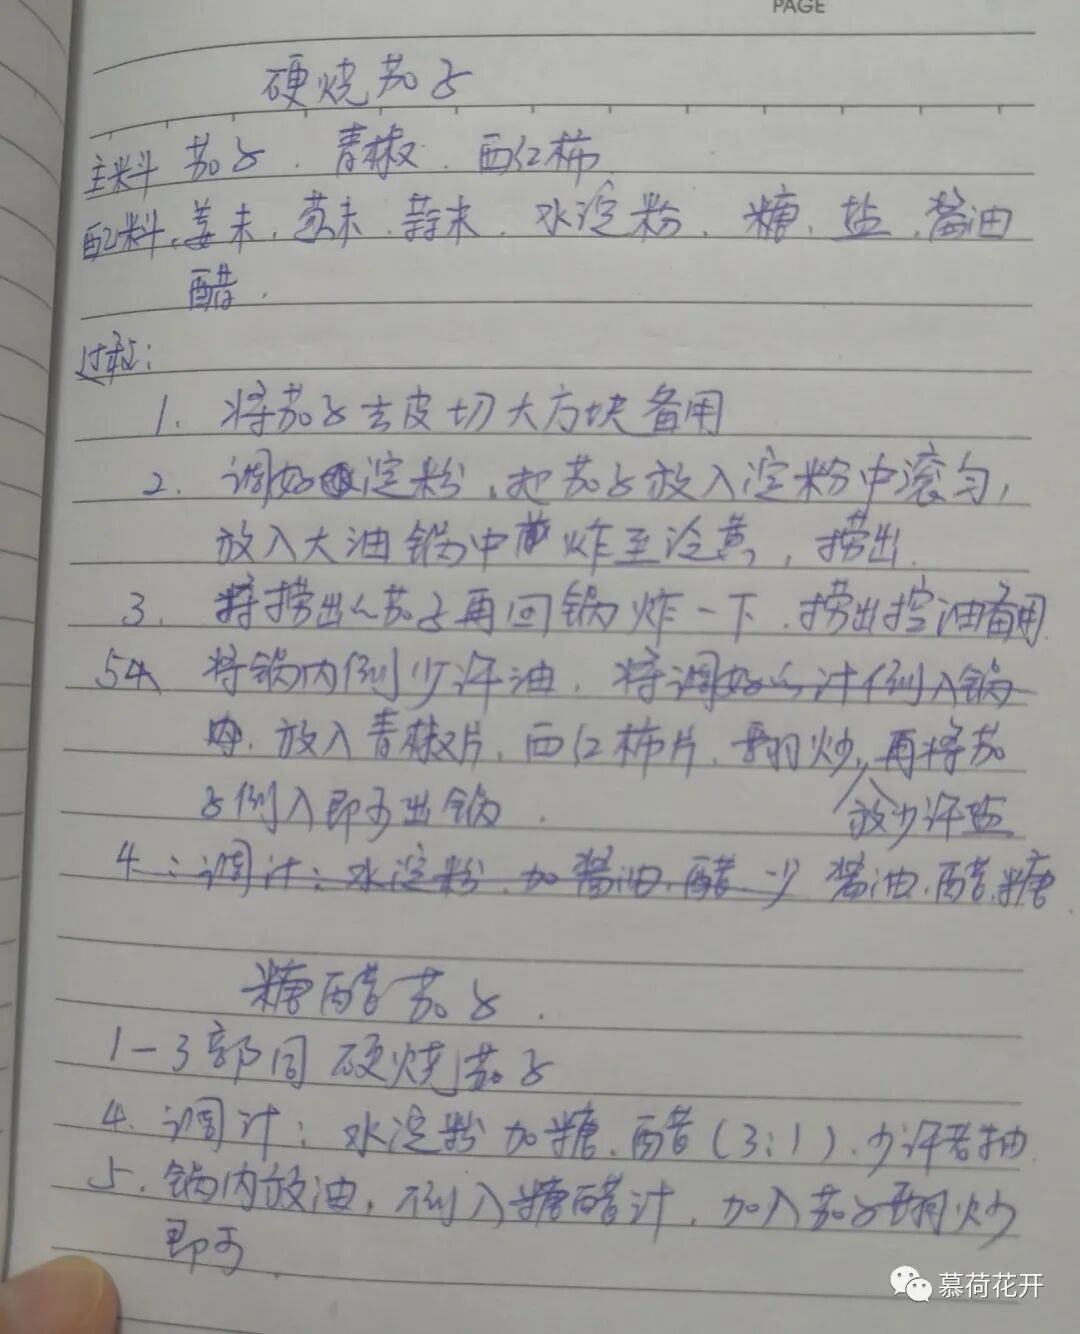 PAGE
硬烧茄子
主料 茄子.青椒.西红柿
配料.姜末.葱末.蒜末.水淀粉.糖.盐.酱油
醋.
过程:
1. 将茄子去皮切大方块备用
2. 调好淀粉,把茄子放入淀粉中滚匀,
放入大油锅中炸至冷黄,捞出.
3. 将捞出的茄子再回锅炸一下.捞出控油备用
54、将锅内倒少许油.将调好的汁倒入锅
内.放入青椒片.西红柿片.翻炒,再将茄
子倒入即可出锅. 放少许盐
4.:调汁:水淀粉.加酱油.醋.少 酱油.醋.糖
糖醋茄子.
1-3部同 硬烧茄子
4. 调汁:水淀粉加糖.醋(3:1).少许老抽
5. 锅内放油,倒入糖醋汁,加入茄子翻炒
即可.
慕荷花开